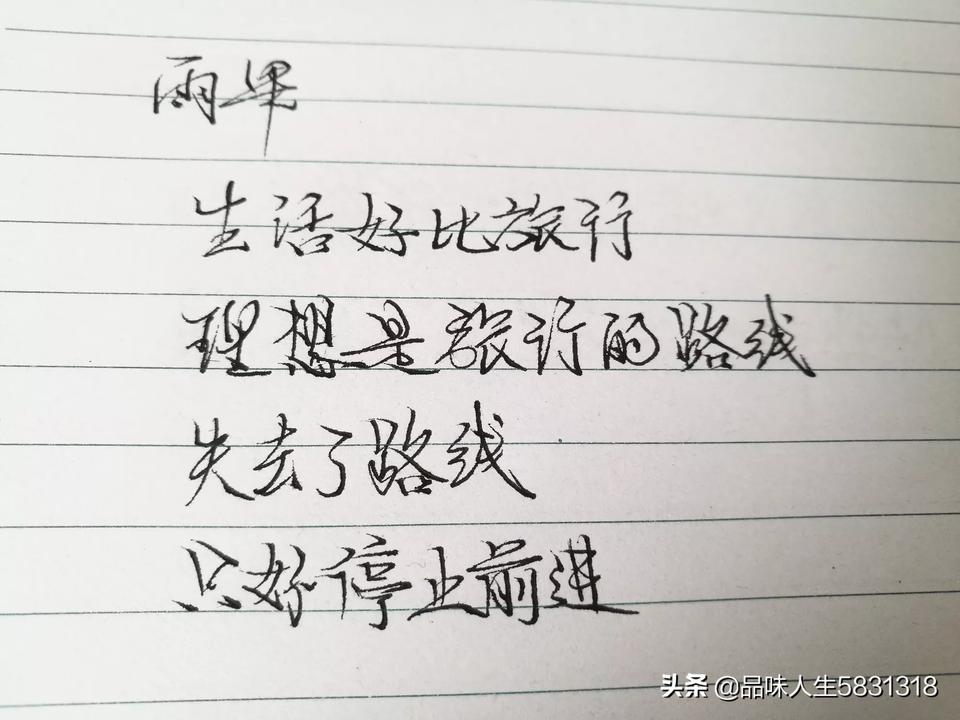 雨果
生活好比旅行
理想是旅行的路线
失去了路线
只好停止前进
头条 @品味人生5831318